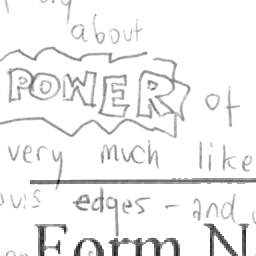 about
POWER of
very much like
edges - and
Form N